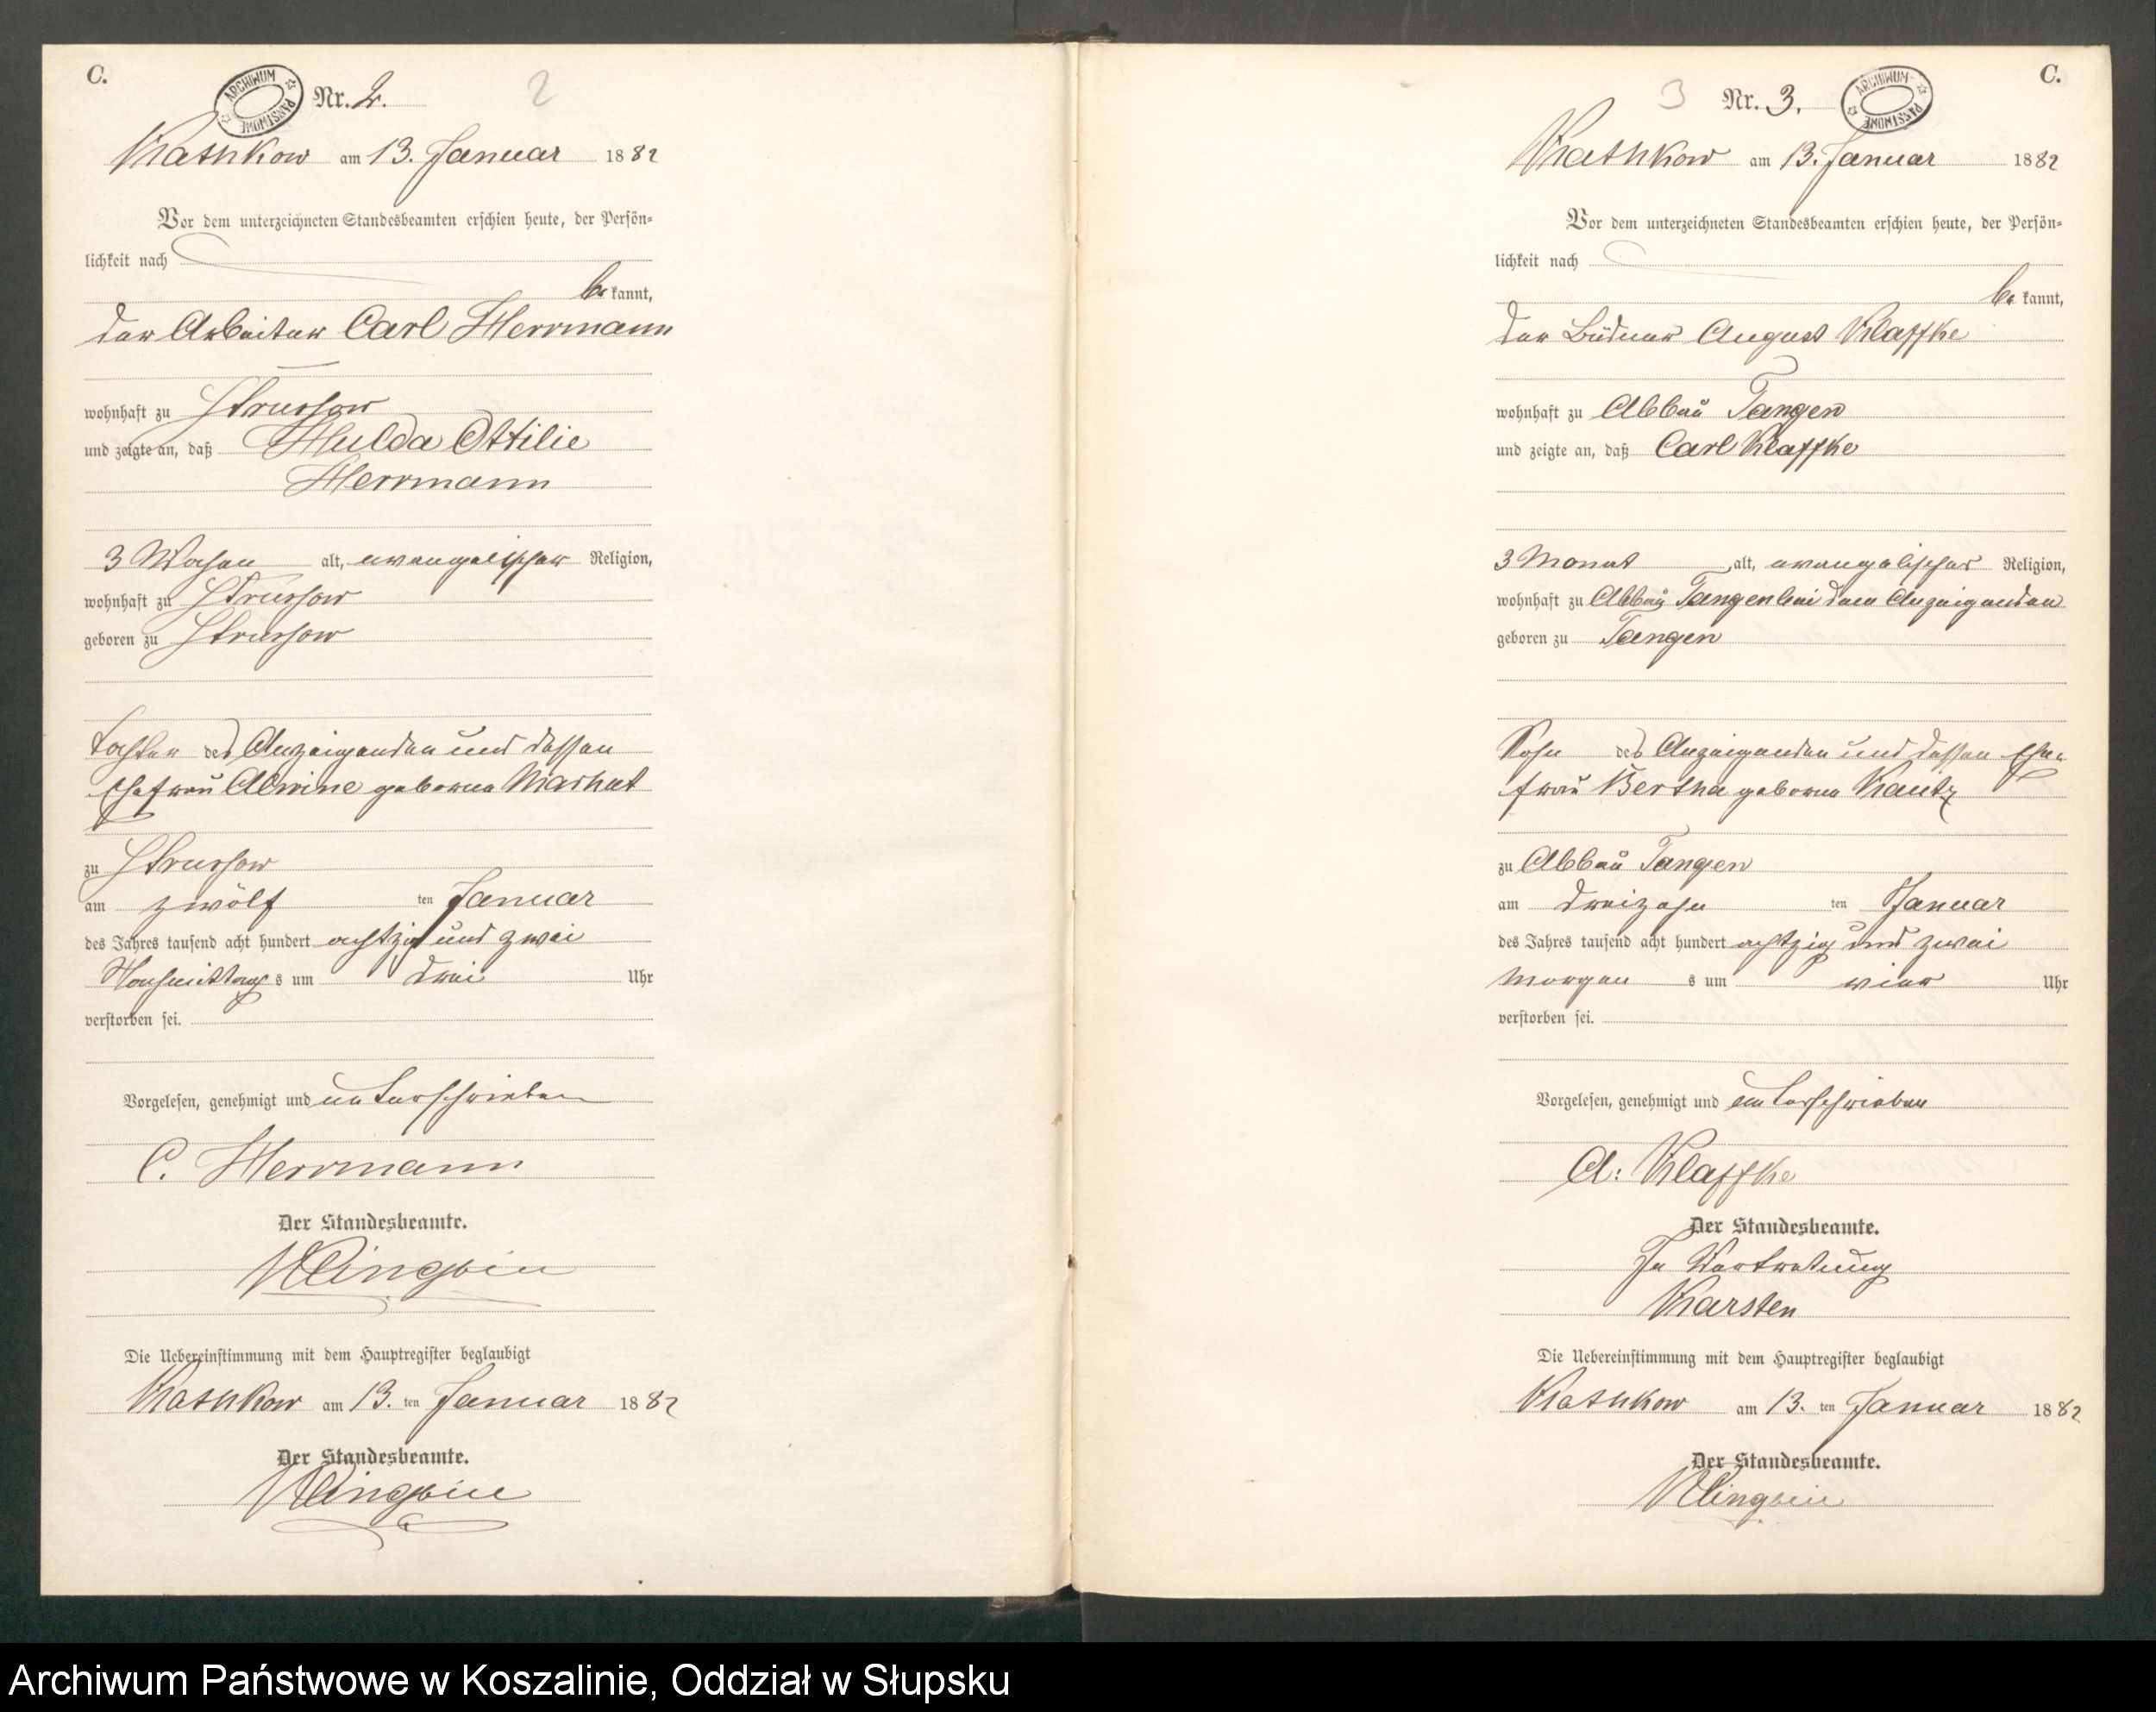 C.
ARCHIWUM PAŃSTWOWE
Nr. 2.
2
Rathkow am 13. Januar 1882
Vor dem unterzeichneten Standesbeamten erschien heute, der Persön-
lichkeit nach
be kannt,
der Arbeiter Carl Herrmann
wohnhaft zu Strussow
und zeigte an, daß Hulda Ottilie
Herrmann
3 Wochen alt, evangelischer Religion,
wohnhaft zu Strussow
geboren zu Strussow
Tochter des Anzeigenden und dessen
Ehefrau Alwine geborne
zu Strussow
am zwölf ten Januar
des Jahres tausend acht hundert achtzig und zwei
Nachmittag s um drei Uhr
verstorben sei.
Vorgelesen, genehmigt und unterschrieben
C. Herrmann
Der Standesbeamte.
Die Uebereinstimmung mit dem Hauptregister beglaubigt
Rathkow am 13. ten Januar 1882
Der Standesbeamte.
C.
3
Nr. 3.
ARCHIWUM PAŃSTWOWE
Rathkow am 13. Januar 1882
Vor dem unterzeichneten Standesbeamten erschien heute, der Persön-
lichkeit nach
be kannt,
der Büdner August Klaffke
wohnhaft zu Abbau Tangen
und zeigte an, daß Carl Klaffke
3 Monat alt, evangelischer Religion,
wohnhaft zu Abbau Tangen bei dem Anzeigenden
geboren zu Tangen
Sohn des Anzeigenden und dessen Ehe-
frau Bertha geborne Kautz
zu Abbau Tangen
am dreizehn ten Januar
des Jahres tausend acht hundert achtzig und zwei
Morgen s um vier Uhr
verstorben sei.
Vorgelesen, genehmigt und unterschrieben
A: Klaffke
Der Standesbeamte.
In Vertretung
Karsten
Die Uebereinstimmung mit dem Hauptregister beglaubigt
Rathkow am 13. ten Januar 1882
Der Standesbeamte.
Archiwum Państwowe w Koszalinie, Oddział w Słupsku